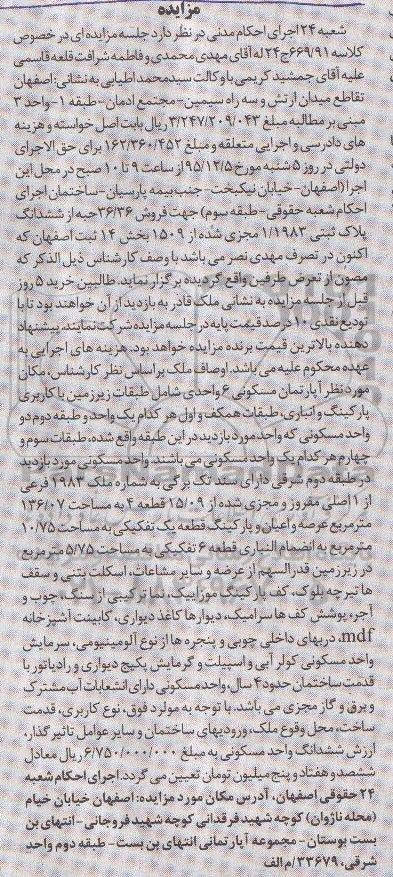 مزایده
شعبه ۲۴ اجرای احکام مدنی در نظر دارد جلسه مزایده ای در خصوص
کلاسه ۶۶۹/۹۱ج۲۴ له آقای مهدی محمدی و فاطمه شرافت قلعه قاسمی
علیه آقای جمشید کریمی با وکالت سیدمحمد اطیابی به نشانی: اصفهان
تقاطع میدان ارتش و سه راه سیمین-مجتمع ادمان-طبقه ۱-واحد ۳
مبنی بر مطالبه مبلغ ۳/۲۴۷/۲۰۹/۰۴۳ ریال بابت اصل خواسته و هزینه
های دادرسی و اجرایی متعلقه و مبلغ ۱۶۲/۳۶۰/۴۵۲ برای حق الاجرای
دولتی در روز ۵ شنبه مورخ ۹۵/۱۲/۵ از ساعت ۹ تا ۱۰ صبح در محل این
اجرا(اصفهان-خیابان نیکبخت-جنب بیمه پارسیان-ساختمان اجرای
احکام شعبه حقوقی-طبقه سوم) جهت فروش ۳۶/۳۶ حبه از ششدانگ
پلاک ثبتی ۱/۱۹۸۳ مجزی شده از ۱۵۰۹ بخش ۱۴ ثبت اصفهان که
اکنون در تصرف مهدی نصر می باشد با وصف کارشناس ذیل الذکر که
مصون از تعرض طرفین واقع گردیده برگزار نماید. طالبین خرید ۵ روز
قبل از جلسه مزایده به نشانی ملک قادر به بازدید از آن خواهند بود تا با
تودیع نقدی ۱۰ درصد قیمت پایه در جلسه مزایده شرکت نمایند. پیشنهاد
دهنده بالاترین قیمت برنده مزایده خواهد بود. هزینه های اجرایی به
عهده محکوم علیه می باشد. اوصاف ملک بر اساس نظر کارشناس، مکان
مورد نظر آپارتمان مسکونی ۶ واحدی شامل طبقات زیرزمین با کاربری
پارکینگ و انباری، طبقات همکف و اول هر کدام یک واحد و طبقه دوم دو
واحد مسکونی که واحد مورد بازدید در این طبقه واقع شده، طبقات سوم و
چهارم هر کدام یک واحد مسکونی می باشند. واحد مسکونی مورد بازدید
در طبقه دوم شرقی دارای سند تک برگی به شماره ملک ۱۹۸۳ فرعی
از ۱ اصلی مفروز و مجزی شده از ۱۵/۰۹ قطعه ۴ به مساحت ۱۳۶/۰۷
مترمربع عرصه و اعیان و پارکینگ قطعه یک تفکیکی به مساحت ۱۰/۷۵
مترمربع به انضمام النباری قطعه ۶ تفکیکی به مساحت ۵/۷۵ مترمربع
در زیرزمین قدرالسهم از عرصه و سایر مشاعات، اسکلت بتنی و سقف
ها تیرچه بلوک، کف پارکینگ موزاییک، نما ترکیبی از سنگ، چوب و
آجر، پوشش کف ها سرامیک، دیوارها کاغذ دیواری، کابینت آشپزخانه
mdf، دربهای داخلی چوبی و پنجره ها از نوع آلومینیومی، سرمایش
واحد مسکونی کولر آبی و اسپیلت و گرمایش پکیج دیواری و رادیاتور با
قدمت ساختمان حدود ۴ سال، واحد مسکونی دارای انشعابات آب مشترک
و برق و گاز مجزی می باشد. با توجه به موارد فوق، نوع کاربری، قدمت
ساخت، محل وقوع ملک، ورودیهای ساختمان و سایر عوامل تاثیرگذار،
ارزش ششدانگ واحد مسکونی به مبلغ ۶/۷۵۰/۰۰۰/۰۰۰ ریال معادل
ششصد و هفتاد و پنج میلیون تومان تعیین می گردد. اجرای احکام شعبه
۲۴ حقوقی اصفهان، آدرس مکان مورد مزایده: اصفهان خیابان خیام
(محله ناژوان) کوچه شهید فرقدانی کوچه شهید فروجانی-انتهای بن
بست بوستان-مجموعه آپارتمانی انتهای بن بست-طبقه دوم واحد
شرقی، ۳۳۶۷۹/م الف